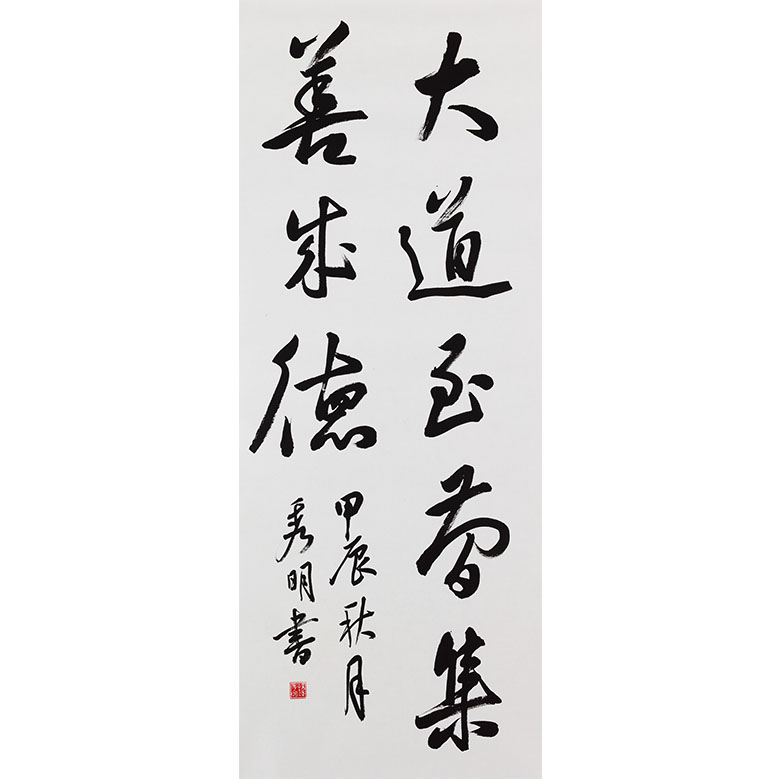 大道至简集
善成德
甲辰秋月
秀明書